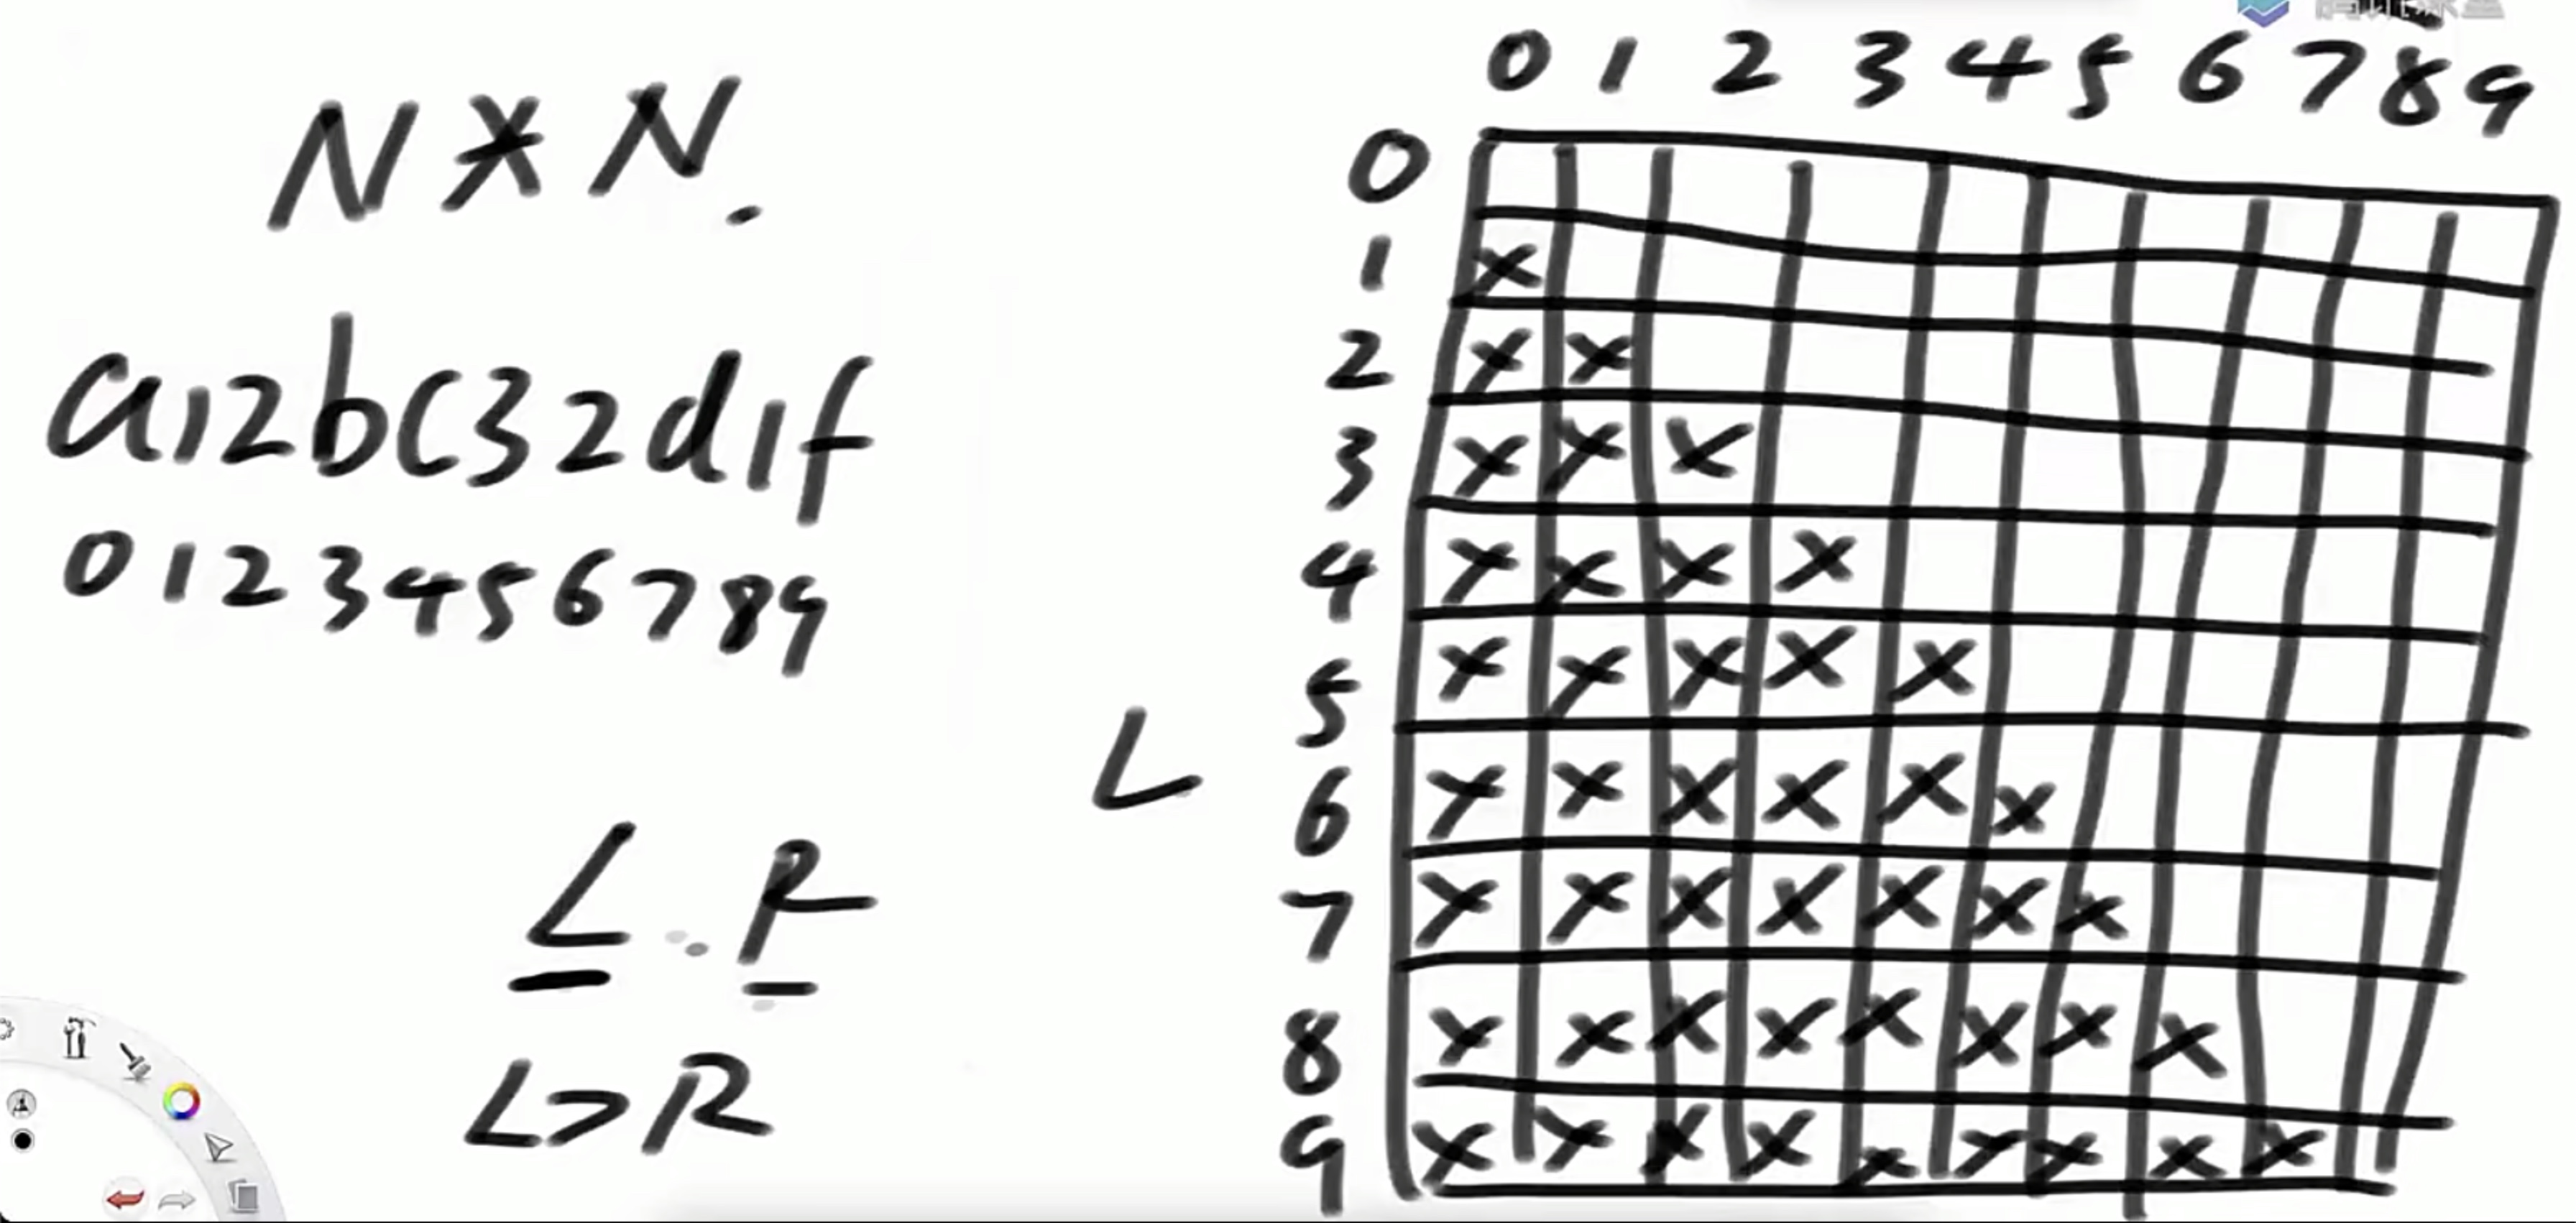 N * N.
a12bc32d1f
0123456789
L..R
L>R
L
0 1 2 3 4 5 6 7 8 9
0
1 x
2 x x
3 x x x
4 x x x x
5 x x x x x
6 x x x x x x
7 x x x x x x x
8 x x x x x x x x
9 x x x x x x x x x